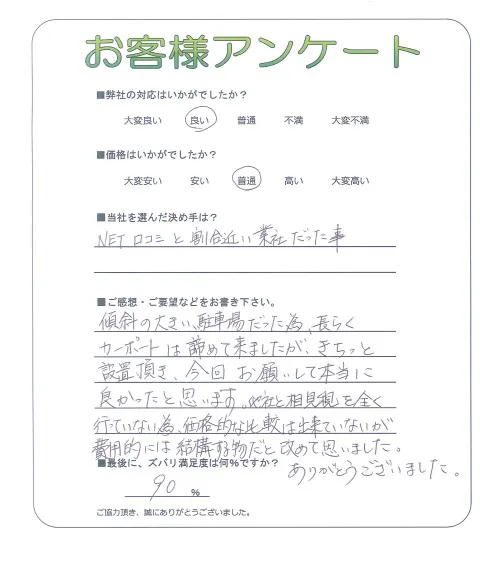 お客様アンケート
■弊社の対応はいかがでしたか?
大変良い 良い 普通 不満 大変不満
■価格はいかがでしたか?
大変安い 安い 普通 高い 大変高い
■当社を選んだ決め手は?
NET口コミと割合近い業社だった事
■ご感想・ご要望などをお書き下さい。
傾斜の大きい、駐車場だった為、長らく
カーポートは諦めて来ましたが、きちっと
設置頂き、今回お願いして本当に
良かったと思います。他社と相見積を全く
行っていない為、価格的な比較は出来ていないが
費用的には結構な物だと改めて思いました。
ありがとうございました。
■最後に、ズバリ満足度は何%ですか?
90 %
ご協力頂き、誠にありがとうございました。